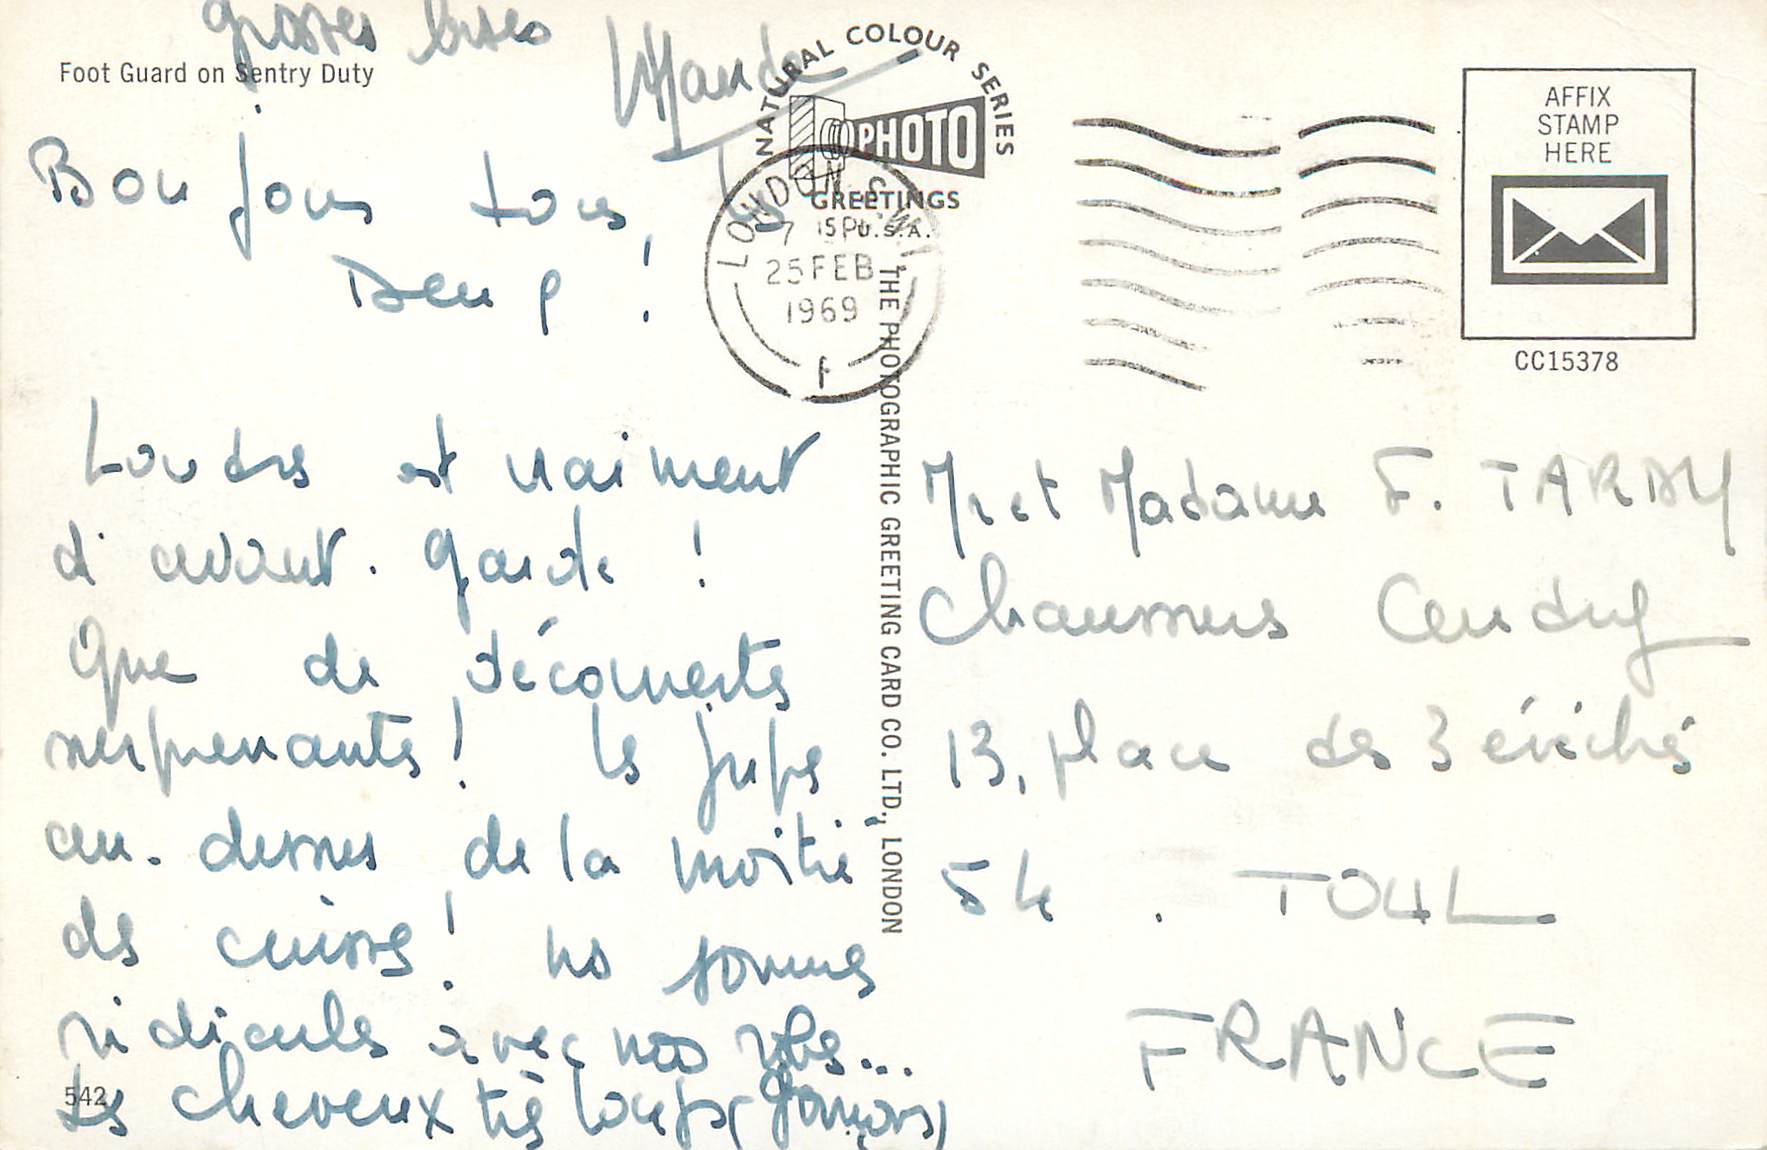 grosses bises
Foot Guard on Sentry Duty
Bonjour tous
!
Londres est vraiment
d'avant-garde !
Que de découvertes
surprenantes ! les jupes
au-dessus de la moitié
des cuisses ! ns sommes
ridicules avec nos robes...
Les cheveux très longs (garçons)
542
NATURAL COLOUR SERIES
PHOTO
GREETINGS
U.S.A.
LONDON S.W.1
7 15 PM
25 FEB
1969
THE PHOTOGRAPHIC GREETING CARD CO. LTD., LONDON
AFFIX
STAMP
HERE
CC15378
Mr et Madame F. TARDY
Chaussures
13, place des 3 évêchés
54. TOUL
FRANCE